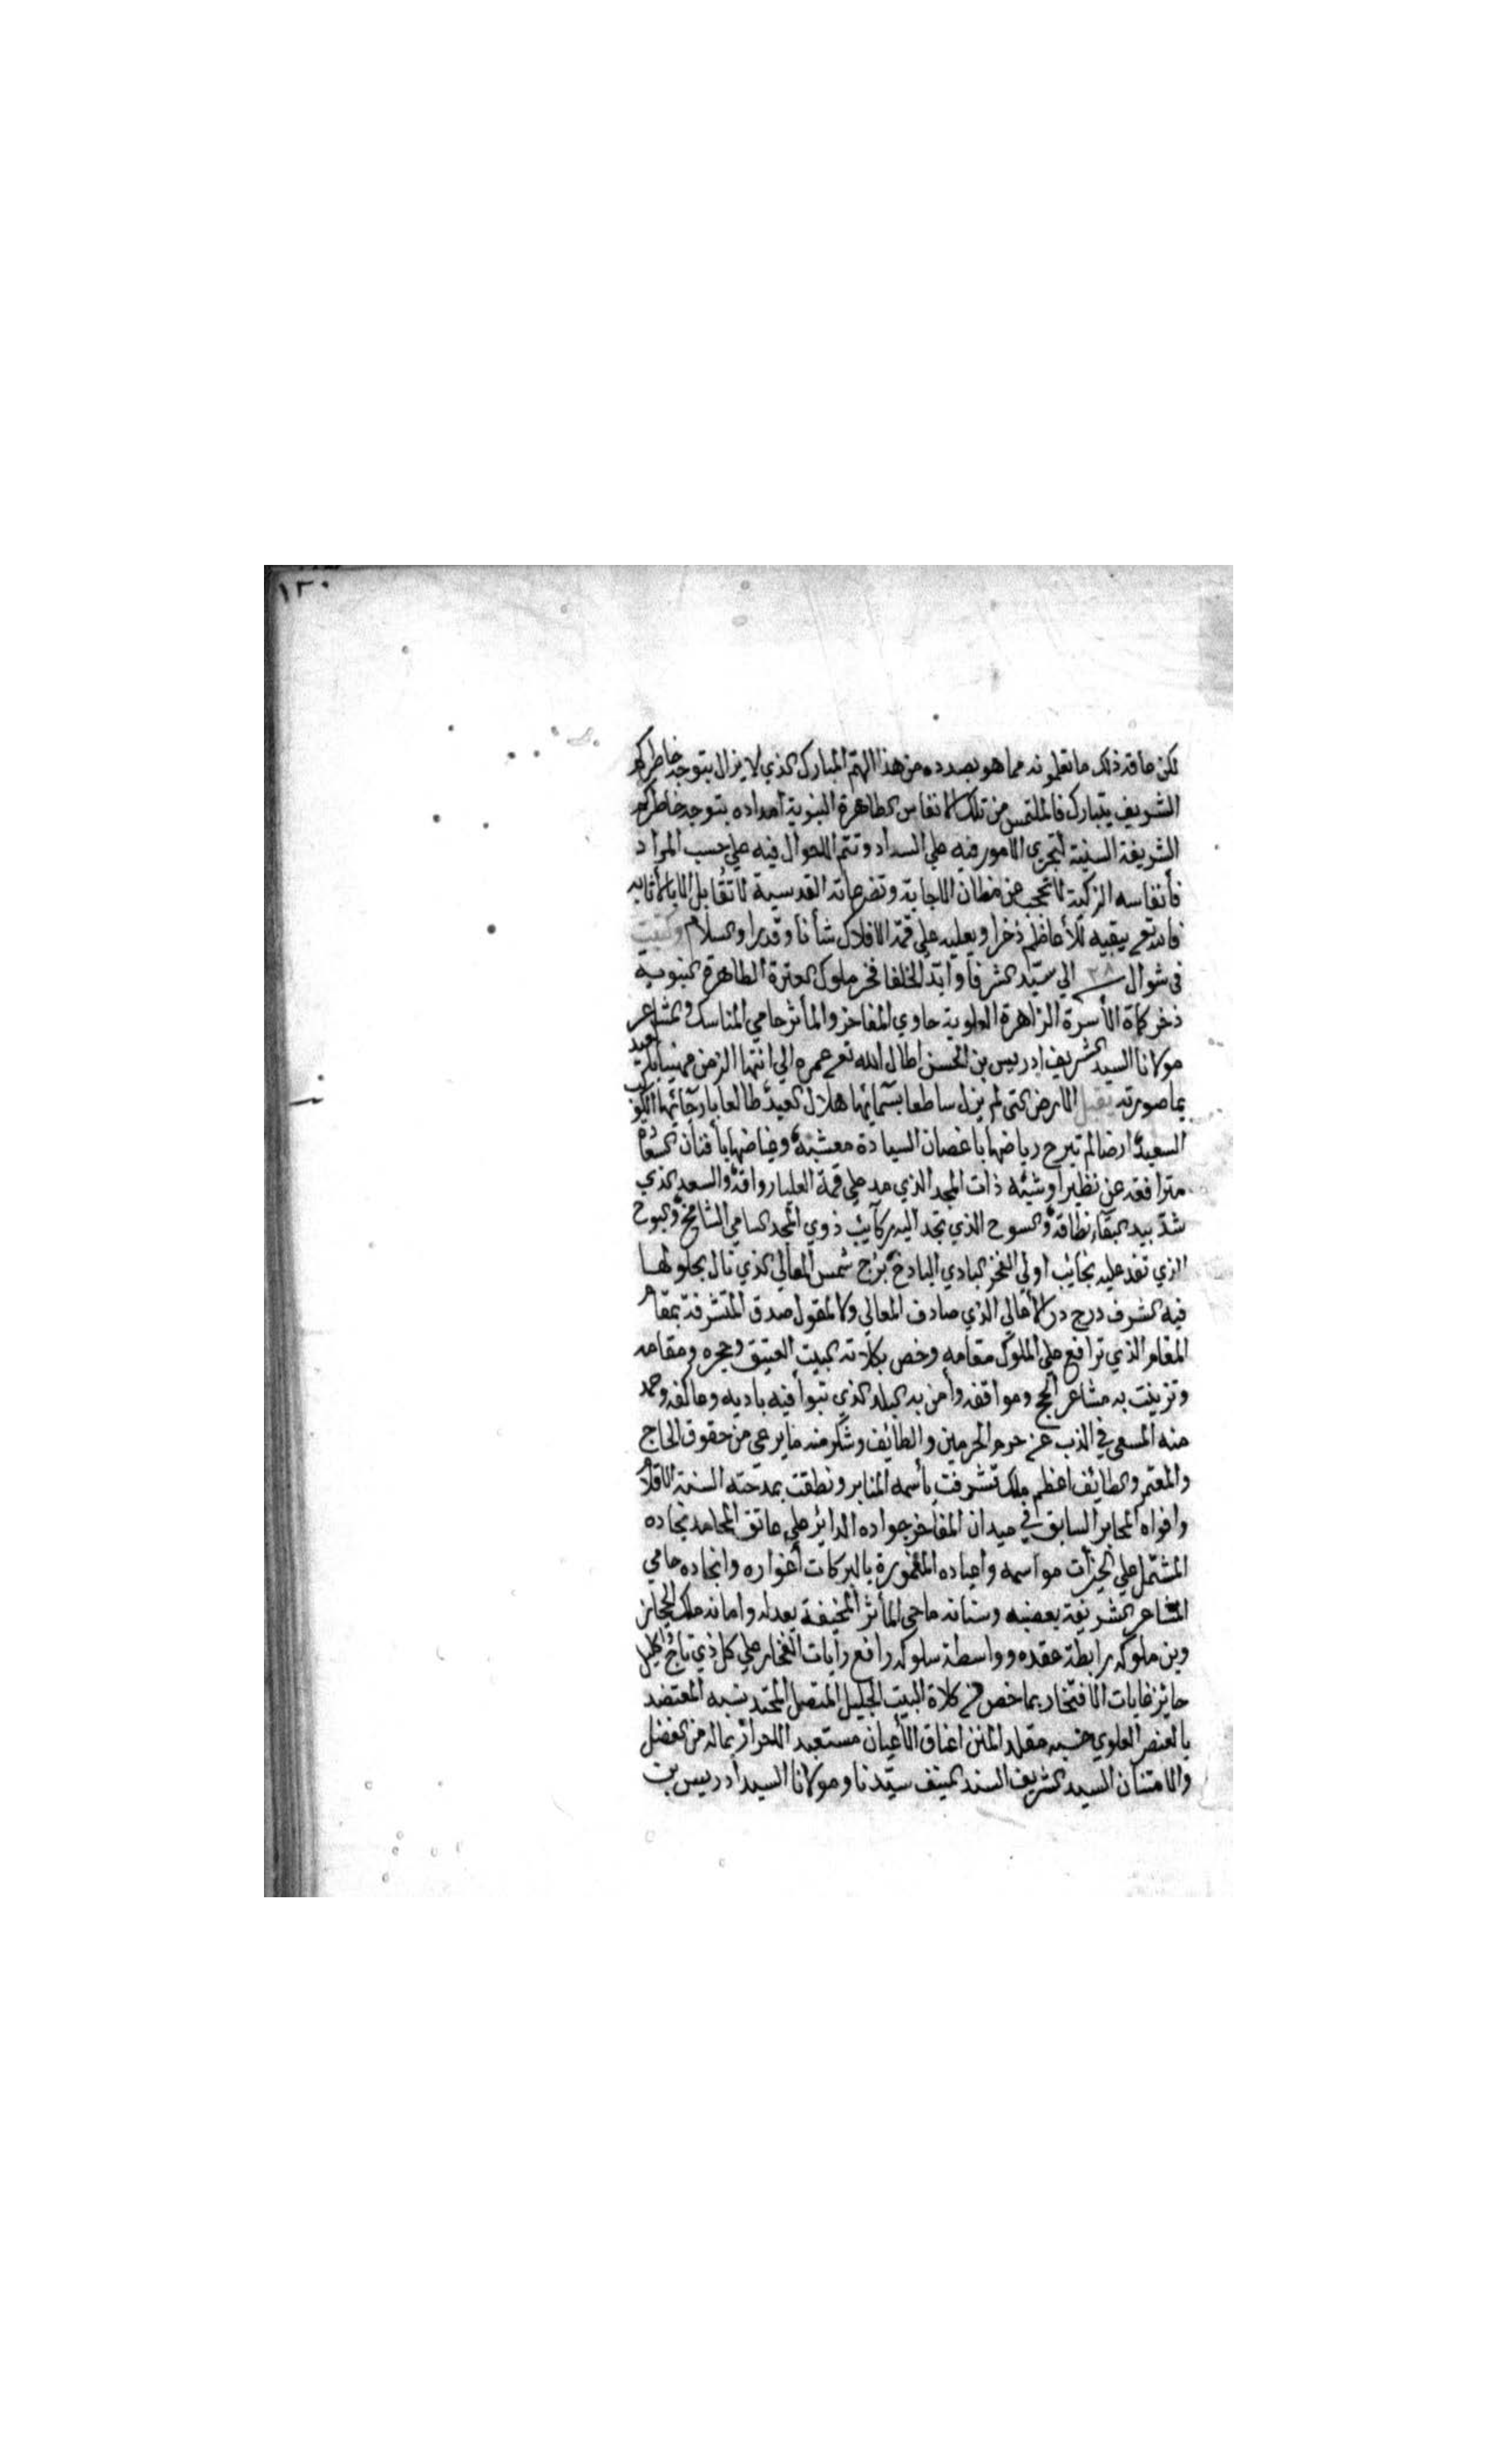 ١٣٠
لكن ما قد ذلك ما تعلمونه مما هو بصدده من هذا الهم المبارك الذي لا يزال بتوجه خاطركم
الشريف يتبارك فالملتمس من تلك الانفاس الطاهرة النبوية امداده بتوجه خاطركم
الشريفة السنية لتجري الامور فيه علي السداد وتتم الاحوال فيه علي حسب المراد
فأنفاسه الزكية لا تحجب عن مظان الاجابة وتضرعاته القدسية لا تقابل الا بالاثابه
فالله تعـ يبقيه للأعاظم ذخرا ويعليه علي قمة الافلاك شأنا وقدرا والسلام وكتبت
في شوال ٢٨ الي سيد الشرفا وابتد الخلفا فخر ملوك العترة الطاهرة النبوية
ذخر كماة الأسرة الزاهرة العلوية حاوي المفاخر والمأثر حامي المناسك والمشاعر
مولانا السيد الشريف ادريس بن الحسن اطال الله تعـ عمره الي انتها الزمن مهنيا بالعيد
بما صورته تقبيل الارض التي لم يزل ساطعا بسمائها هلال العيد طالعا بارجائها الكوكب
السعيد ارضا لم تبرح رياضها باغصان السيادة معشبة وغياضها بأفنان السعادة
مترافقه عن نظير او شبه ذات المجد الذي مد علي قمة العليا رواقه والسعد الذي
شد بيد البقاء نطاقه والسوح الذي تجد اليه ركائب ذوي المجد السامي الشامخ والبوح
الذي تفد عليه نجائب اولي الفخر البادي الباذخ برج شمس المعالي الذي نال بحلولها
فيه الشرف درج در الأهالي الذي صادف المعالي ولا المقول صدق المتشرفة بمقام
المقام الذي ترافع علي الملوك مقامه وخص بكلاته البيت العتيق وحجره ومقامه
وتزينت به مشاعر الحج ومواقفه وأمن به البلد الذي تبوأ فيه باديه وعاكفه وحمد
منه المسعي في الذب عن حرم الحرمين والطائف وشكر منه ما يرعي من حقوق الحاج
والمعتمر والطائف اعظم ملك تشرفت بأسمه المنابر ونطقت بمدحته السنة الاقلام
وافواه المحابر السابق في ميدان المفاخر جواده الدائر علي عاتق المحامد نجاده
المشتمل علي الخيرات مواسمه واعياده المغمورة بالبركات أغواره وانجاده حامي
المشاعر الشريفة بعضبه وسنانه ماحي المأثر المخيفة بعدله وامانه ملك الحجاز
وبن ملوكه رابطة عقده وواسطة سلوكه رافع رايات الفخار علي كل ذي تاج واكليل
حايز غايات الافتخار بما خص من كلاة البيت الجليل المتصل المحتد بنسبه المعتضد
بالعنصر العلوي حسبه مقلد المنن اعناق الأعيان مستعبد الاحرار بماله من الفضل
والامتنان السيد الشريف السند المنيف سيدنا ومولانا السيد أدريس بن